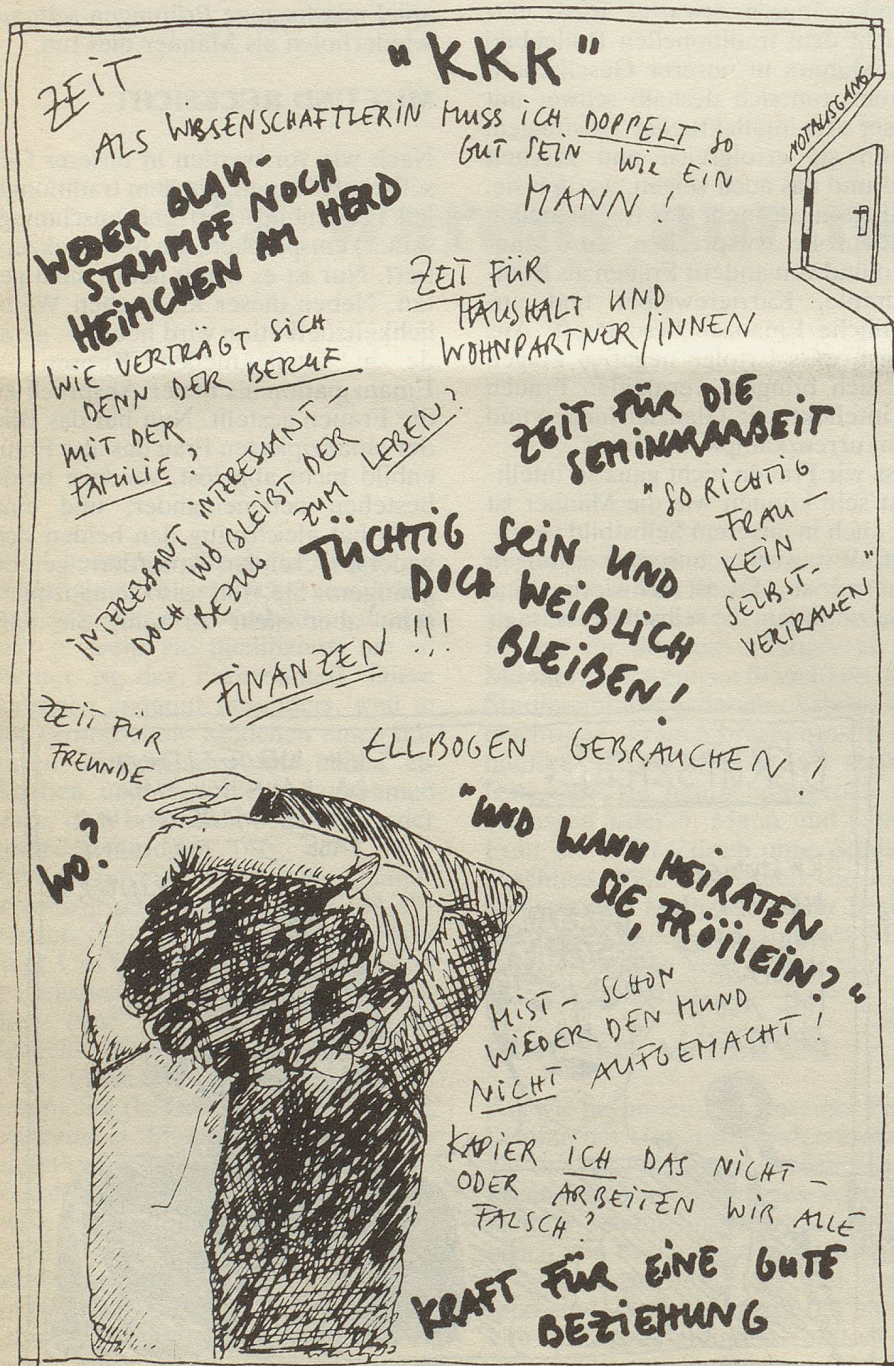 "KKK"
ZEIT
ALS WISSENSCHAFTLERIN MUSS ICH DOPPELT SO
GUT SEIN WIE EIN
MANN!
NOTAUSGANG
WEDER BLAU-
STRUMPF NOCH
HEIMCHEN AM HERD
ZEIT FÜR
HAUSHALT UND
WOHNPARTNER/INNEN
WIE VERTRÄGT SICH
DENN DER BERUF
MIT DER
FAMILIE?
ZEIT FÜR DIE
SEMINARARBEIT
INTERESSANT INTERESSANT-
DOCH WO BLEIBT DER
BEZUG ZUM LEBEN?
"SO RICHTIG
FRAU-
KEIN
SELBST-
VERTRAUEN"
TÜCHTIG SEIN UND
DOCH WEIBLICH
BLEIBEN!
FINANZEN!!!
ZEIT FÜR
FREUNDE
ELLBOGEN GEBRAUCHEN!
WO?
"UND WANN HEIRATEN
SIE, FRÖILEIN?"
MIST- SCHON
WIEDER DEN MUND
NICHT AUFGEMACHT!
KAPIER ICH DAS NICHT-
ODER ARBEITEN WIR ALLE
FALSCH?
KRAFT FÜR EINE GUTE
BEZIEHUNG